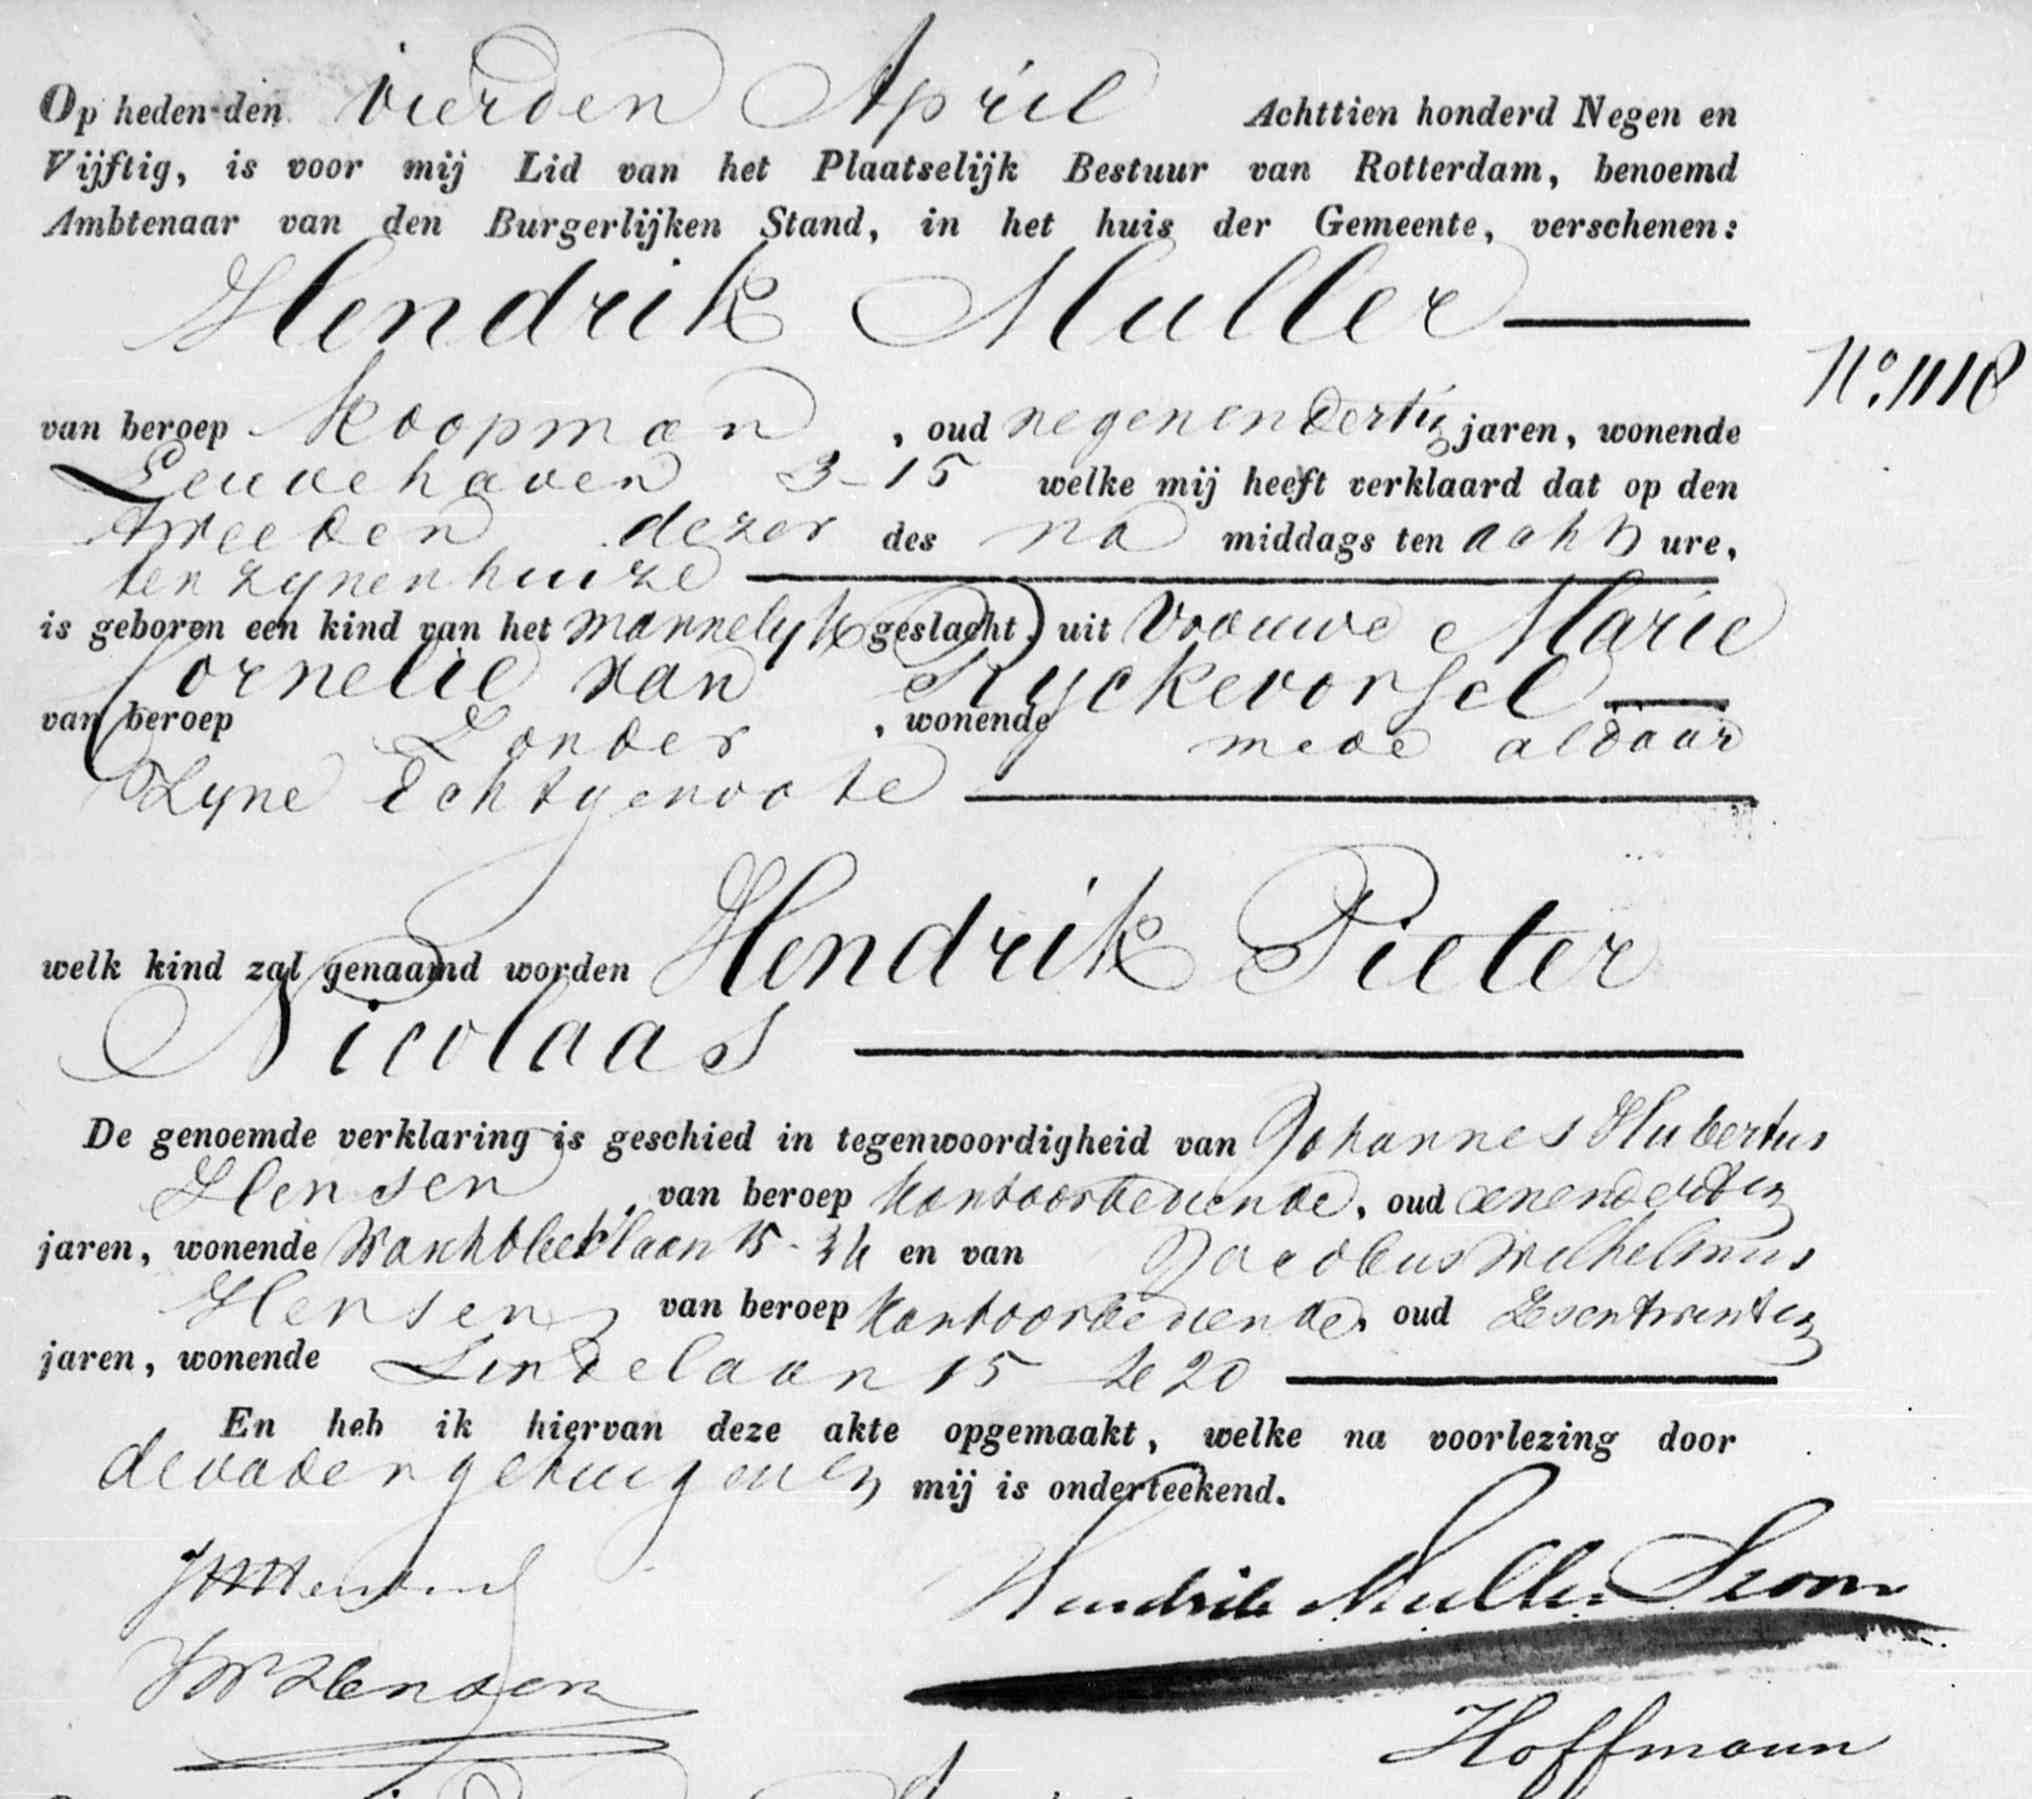 Op heden den vierden April Achttien honderd Negen en
Vijftig, is voor mij Lid van het Plaatselijk Bestuur van Rotterdam, benoemd
Ambtenaar van den Burgerlijken Stand, in het huis der Gemeente, verschenen:
Hendrik Muller
No. 1118
van beroep Koopman, oud negenendertig jaren, wonende
Leuvehaven 3-15 welke mij heeft verklaard dat op den
tweeden dezer des na middags ten acht ure,
ten zynen huize
is geboren een kind van het mannelyk geslacht, uit Vrouwe Marie
Cornelie van Ryckevorsel
van beroep Zonder, wonende mede aldaar
Zyne Echtgenoote
welk kind zal genaamd worden Hendrik Pieter
Nicolaas
De genoemde verklaring is geschied in tegenwoordigheid van Johannes Hubertus
Hensen, van beroep Kantoorbediende, oud eenendertig
jaren, wonende 15 - en van Jacobus Wilhelmus
Hensen, van beroep Kantoorbediende, oud Zesentwintig
jaren, wonende Lindelaan 15 20
En heb ik hiervan deze akte opgemaakt, welke na voorlezing door
de vader getuigen en mij is onderteekend.
Hendrik Muller Szoon
JW Hensen
Hoffmann